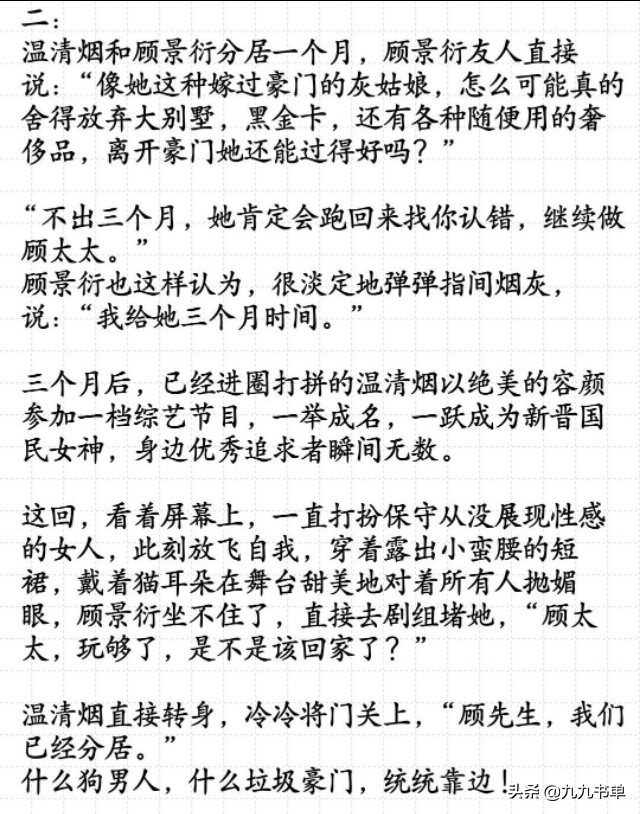 二：
温清烟和顾景衍分居一个月，顾景衍友人直接
说：“像她这种嫁过豪门的灰姑娘，怎么可能真的
舍得放弃大别墅，黑金卡，还有各种随便用的奢
侈品，离开豪门她还能过得好吗？”
“不出三个月，她肯定会跑回来找你认错，继续做
顾太太。”
顾景衍也这样认为，很淡定地弹弹指间烟灰，
说：“我给她三个月时间。”
三个月后，已经进圈打拼的温清烟以绝美的容颜
参加一档综艺节目，一举成名，一跃成为新晋国
民女神，身边优秀追求者瞬间无数。
这回，看着屏幕上，一直打扮保守从没展现性感
的女人，此刻放飞自我，穿着露出小蛮腰的短
裙，戴着猫耳朵在舞台甜美地对着所有人抛媚
眼，顾景衍坐不住了，直接去剧组堵她，“顾太
太，玩够了，是不是该回家了？”
温清烟直接转身，冷冷将门关上，“顾先生，我们
已经分居。”
什么狗男人，什么垃圾豪门，统统靠边！
头条 @九九书单